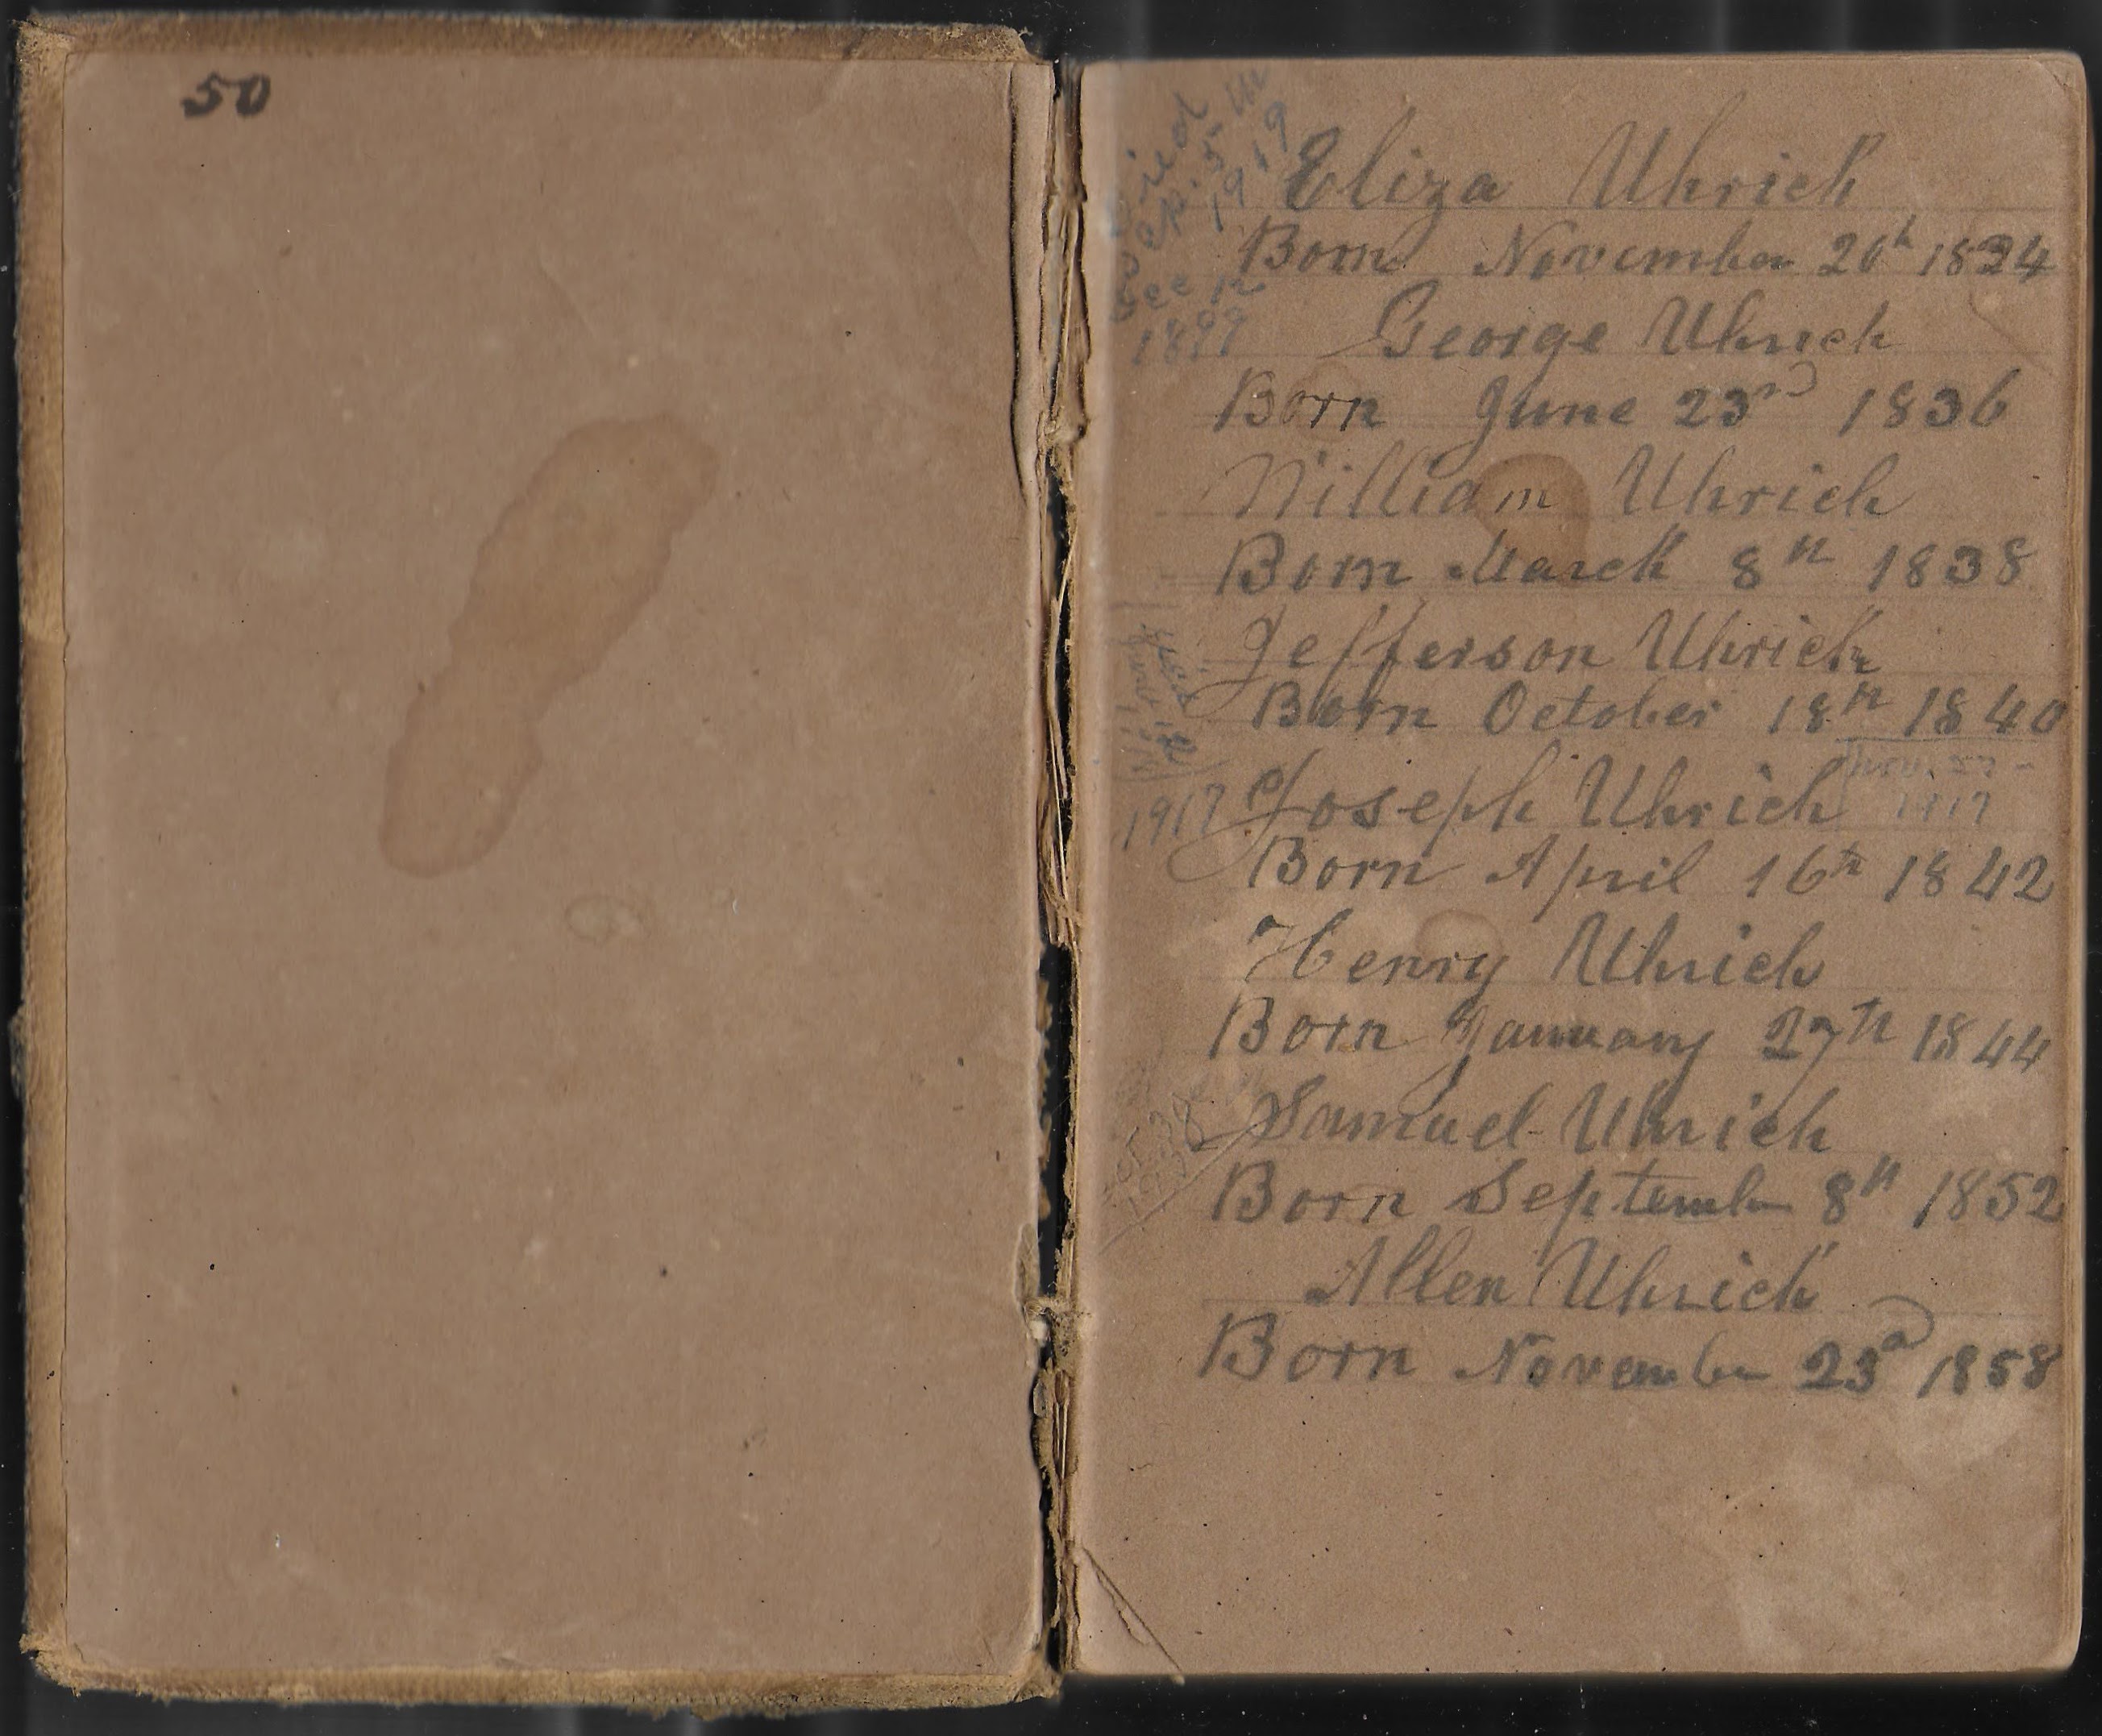 50
Died
Sep. 5th
1919
Eliza Uhrich
Born November 20th 1834
Dec 12
1899
George Uhrich
Born June 23rd 1836
William Uhrich
Born March 8th 1838
Jefferson Uhrich
Born October 18th 1840
Died
June
1917
Nov. 27
1917
Joseph Uhrich
Born April 16th 1842
Henry Uhrich
Born January 27th 1844
Samuel Uhrich
Born September 8th 1852
Allen Uhrich
Born November 23d 1858